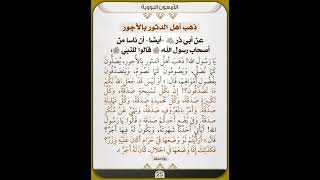 الأربعون النووية
ذهب أهل الدثور بالأجور
عن أبي ذر ﷺ -أيضا- أن ناسا من
أصحاب رسول الله ﷺ قالوا للنبي ﷺ:
يَا رَسُولَ اللهِ! ذَهَبَ أَهْلُ الدُّثُورِ بِالأُجُورِ، يُصَلُّونَ
كَمَا نُصَلِّي، وَيَصُومُونَ كَمَا نَصُومُ، وَيَتَصَدَّقُونَ
بِفُضُولِ أَمْوَالِهِمْ. قَالَ:
مَا تَصَدَّقُونَ؟! إِنَّ بِكُلِّ تَسْبِيحَةٍ صَدَقَةً، وَكُلِّ
تَكْبِيرَةٍ صَدَقَةً، وَكُلِّ تَحْمِيدَةٍ صَدَقَةً، وَكُلِّ تَهْلِيلَةٍ
صَدَقَةً،
صَدَقَةٌ، وَفِي بُضْعِ أَحَدِكُمْ صَدَقَةٌ» قَالُوا: يَا رَسُولَ
اللهِ! أَيَأْتِي أَحَدُنَا شَهْوَتَهُ، وَيَكُونُ لَهُ فِيهَا أَجْرٌ؟
قَالَ: «أَرَأَيْتُمْ لَوْ وَضَعَهَا فِي حَرَامٍ أَكَانَ عَلَيْهِ وِزْرٌ؟
فَكَذَلِكَ إِذَا وَضَعَهَا فِي الحَلَالِ، كَانَ لَهُ أَجْرٌ».
رواه مسلم
25